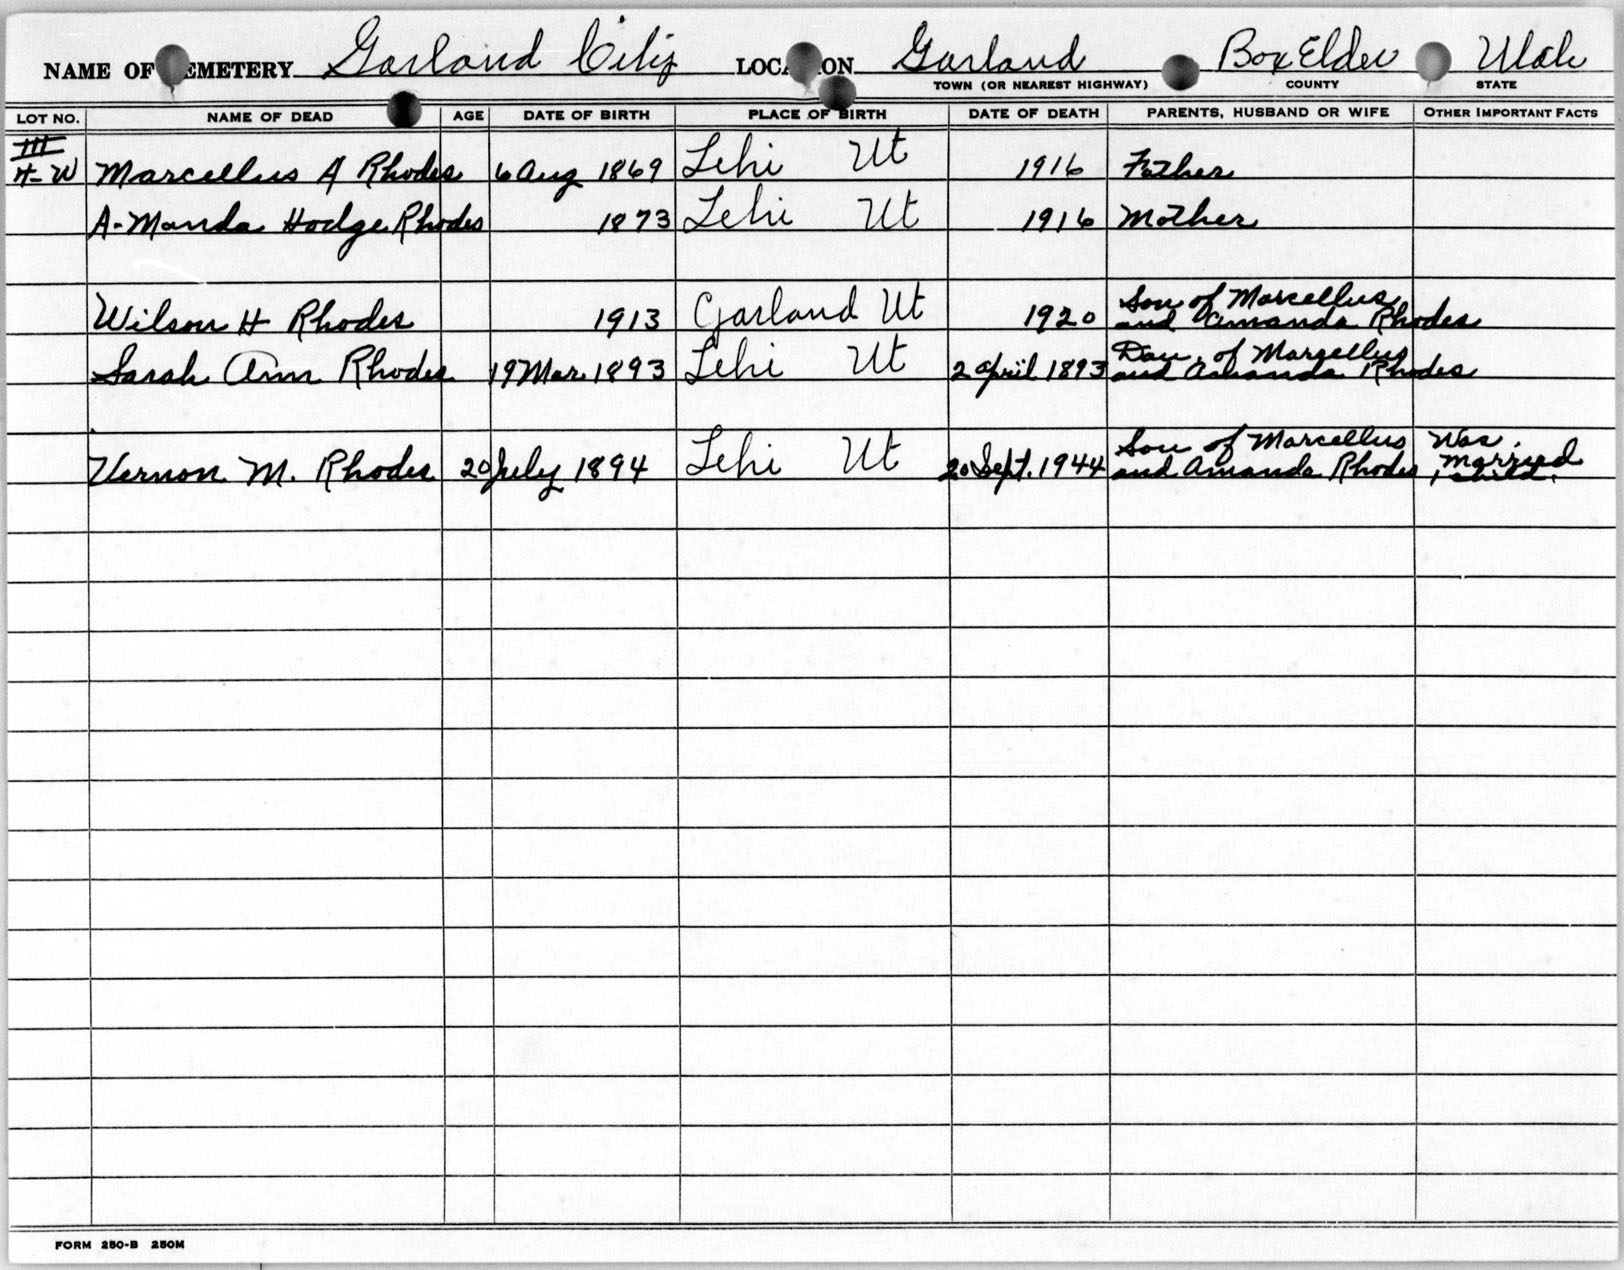 NAME OF CEMETERY Garland City LOCATION Garland Box Elder Utah
TOWN (OR NEAREST HIGHWAY) COUNTY STATE
LOT NO. NAME OF DEAD AGE DATE OF BIRTH PLACE OF BIRTH DATE OF DEATH PARENTS, HUSBAND OR WIFE OTHER IMPORTANT FACTS
III
4-W Marcellus A Rhodes 6 Aug 1869 Lehi Ut 1916 Father
A-Manda Hodge Rhodes 1873 Lehi Ut 1916 Mother
Son of Marcellus
Wilson H Rhodes 1913 Garland Ut 1920 and Amanda Rhodes
Dau, of Marcellus
Sarah Ann Rhodes 19 Mar 1893 Lehi Ut 2 April 1893 and Amanda Rhodes
Son of Marcellus Was
Vernon M. Rhodes 20 July 1894 Lehi Ut 20 Sept. 1944 and Amanda Rhodes married
1 child.
FORM 250-B 250M